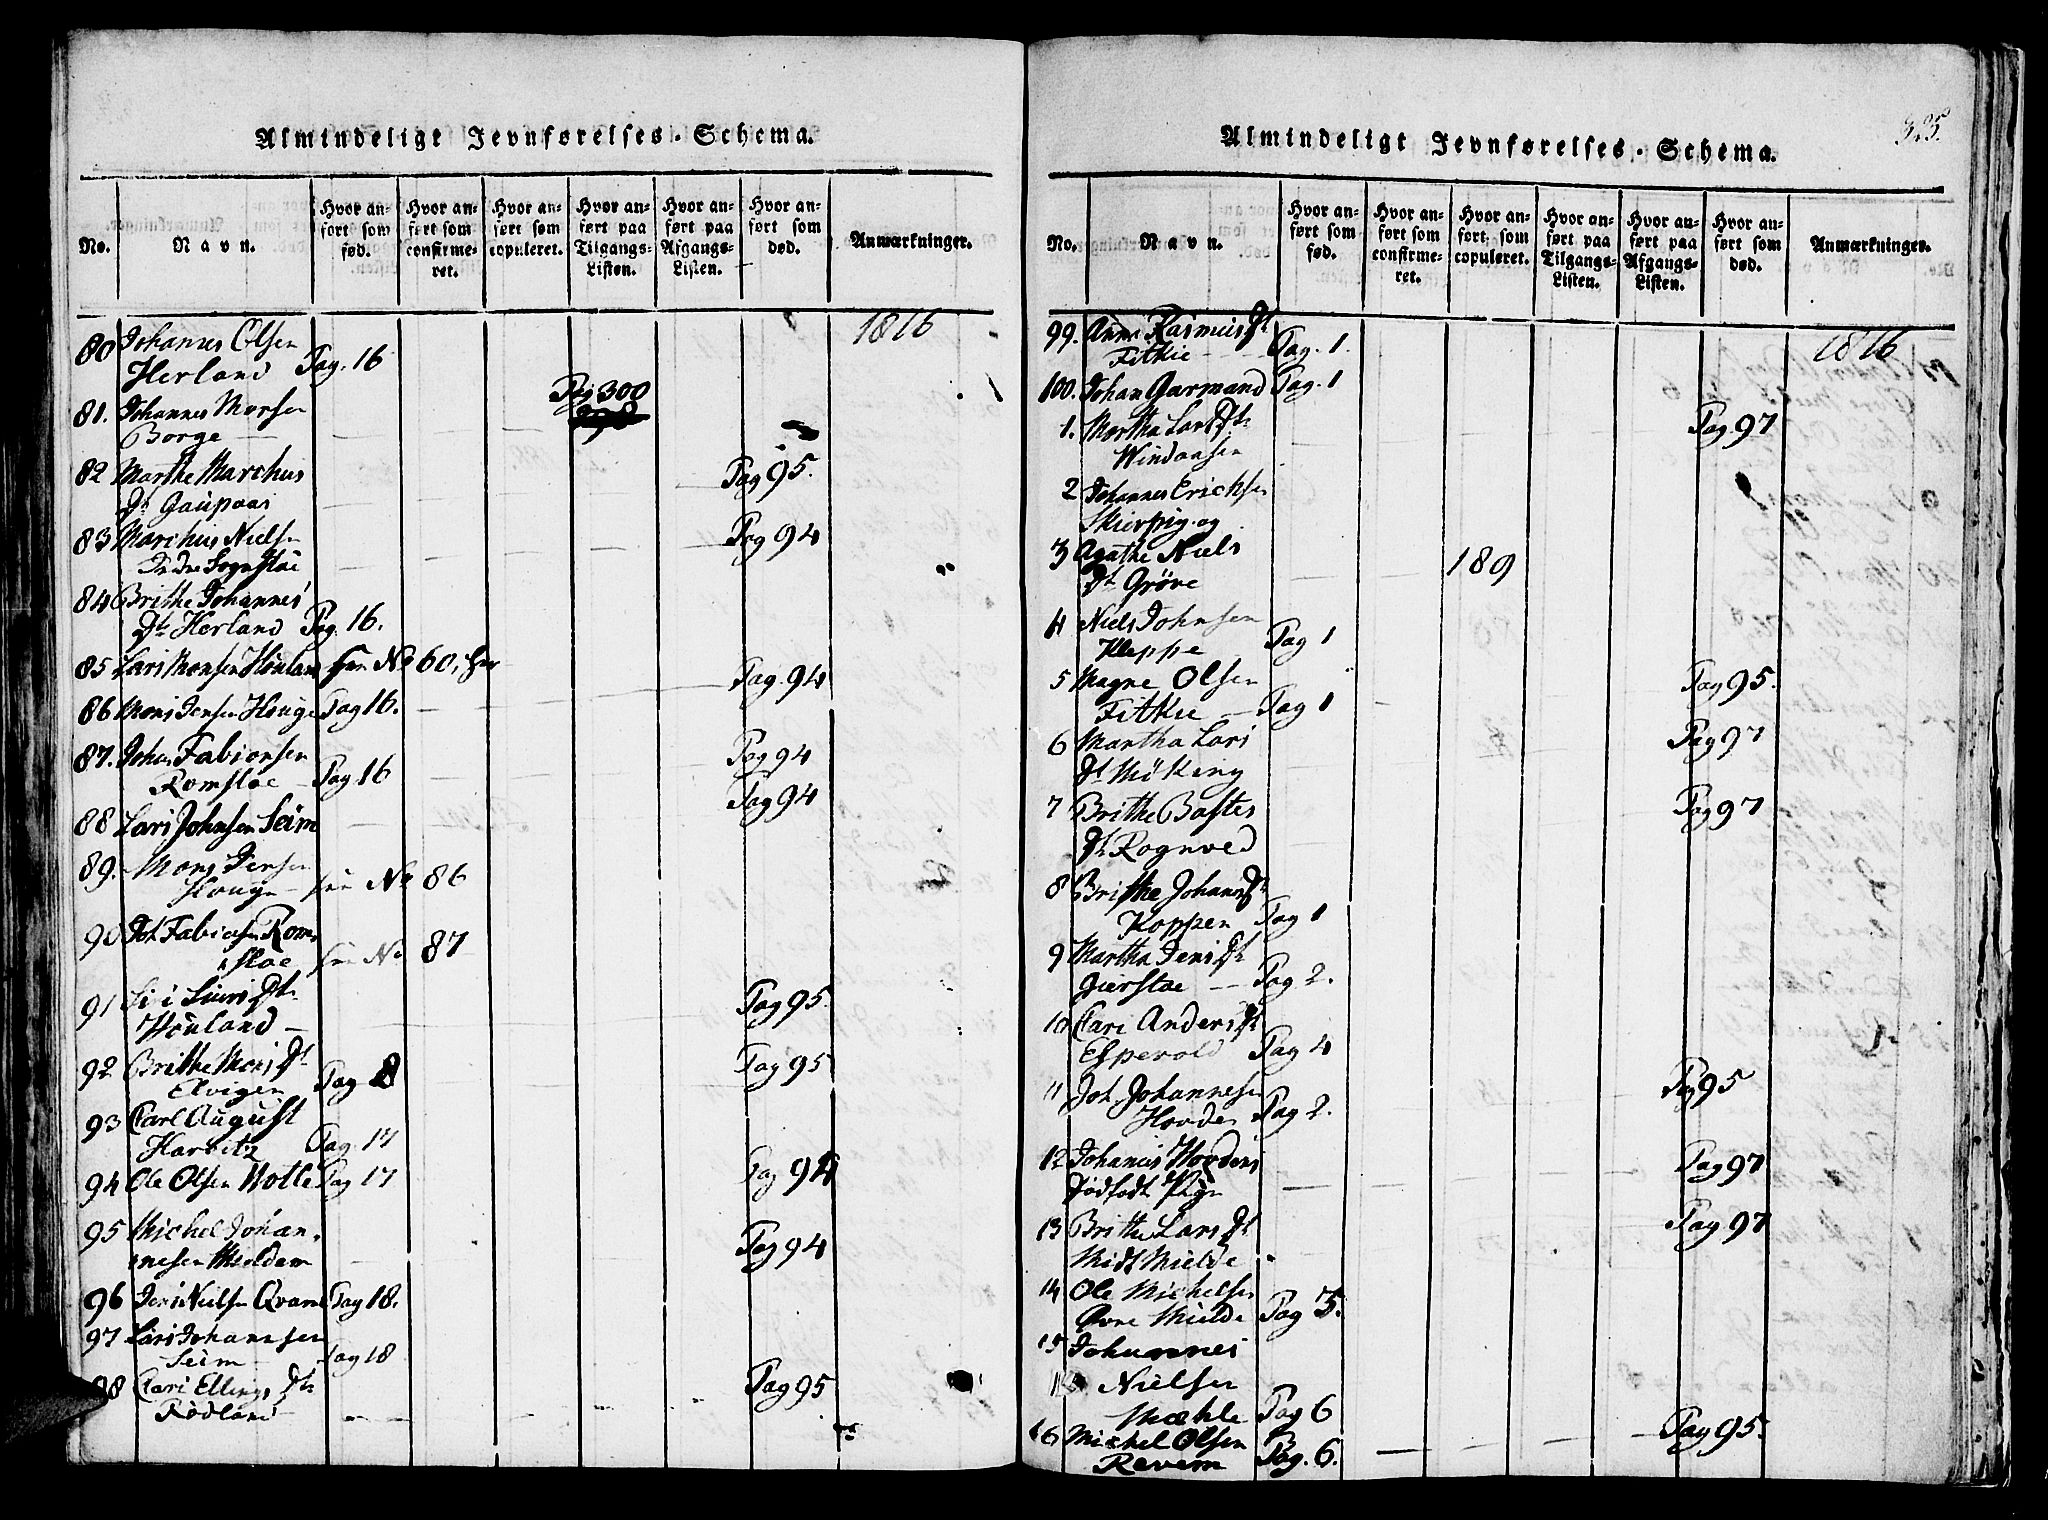 Almindeligt Jevnførelses-Schema.
No. Navn. Hvor anført som fød. Hvor anført som confirmeret. Hvor anført som copuleret. Hvor anført paa Tilgangs-Listen. Hvor anført paa Afgangs-Listen. Hvor anført som død. Anmærkninger.
1816
80 Johannes Olsen
Herland Pag. 16
Pag 300
81. Johannes Monsen
Borge
82 Marthe Marchus
Dt. Gaupaas Pag 95.
83 Marchus Nielsen
Indre Sognstoe Pag 94
84 Brithe Johannes
Dtr Herland Pag. 16.
85 Lars Monsen Houland see No 60, her
86 Mons Jensen Houge Pag 16. Pag. 94
87. Johan Fabiansen
Romsloe Pag 16 Pag 94
88 Lars Johnsen Seim Pag 94
89. Mons Jensen
Houge see No 86
90 Joh. Fabiansen Rom,
sloe see No 87
91 Siri Siursdtr.
Houland Pag 95.
92 Brithe Monsdt
Elvigen Pag 8 Pag 95
93 Carl August
Harbitz Pag. 17
94 Ole Olsen Holle Pag 17 Pag 94
95 Michel Johan,
nesen Mieldem Pag 94
96 Jens Nielsen Qvam Pag 18.
97 Lars Johannesen
Seim Pag 18
98 Kari Ellingsdtr
Rødland Pag 95
Almindeligt Jevnførelses-Schema.
325.
No. Navn. Hvor anført som fød. Hvor anført som confirmeret. Hvor anført som copuleret. Hvor anført paa Tilgangs-Listen. Hvor anført paa Afgangs-Listen. Hvor anført som død. Anmærkninger.
1816
99. Anne Rasmusdt
Fitkie Pag. 1.
100. Johan Garmand Pag. 1
1. Martha Larsdtr
Windansen Pag 97
2 Johannes Erichsen
Skierping og
3 Agathe Niels
Dt. Gröve 189
4 Niels Johnsen
Kleppe Pag 1
5 Magne Olsen
Fitkie Pag 1 Pag 95.
6 Martha Lars
Dt Möking Pag 97
7 Brithe Bastes
Dt Rognved Pag 97
8 Brithe Johansdt
Koppen Pag 1
9 Martha Jensdt
Gierstae Pag 2.
10 Kari Andersdt
Espevold Pag 4
11 Joh. Johannesen
Hovden Pag 2. Pag 95
12 Johannes Hovdens
dødfødt Pige Pag 97
13 Brithe Larsdt
Midt Mielde Pag 97
14 Ole Michelsen
Øvre Mielde Pag 3.
15 Johannes
Nielsen
Mæhle Pag 6
16 Michel Olsen Pag 95.
Revem Pag. 6.